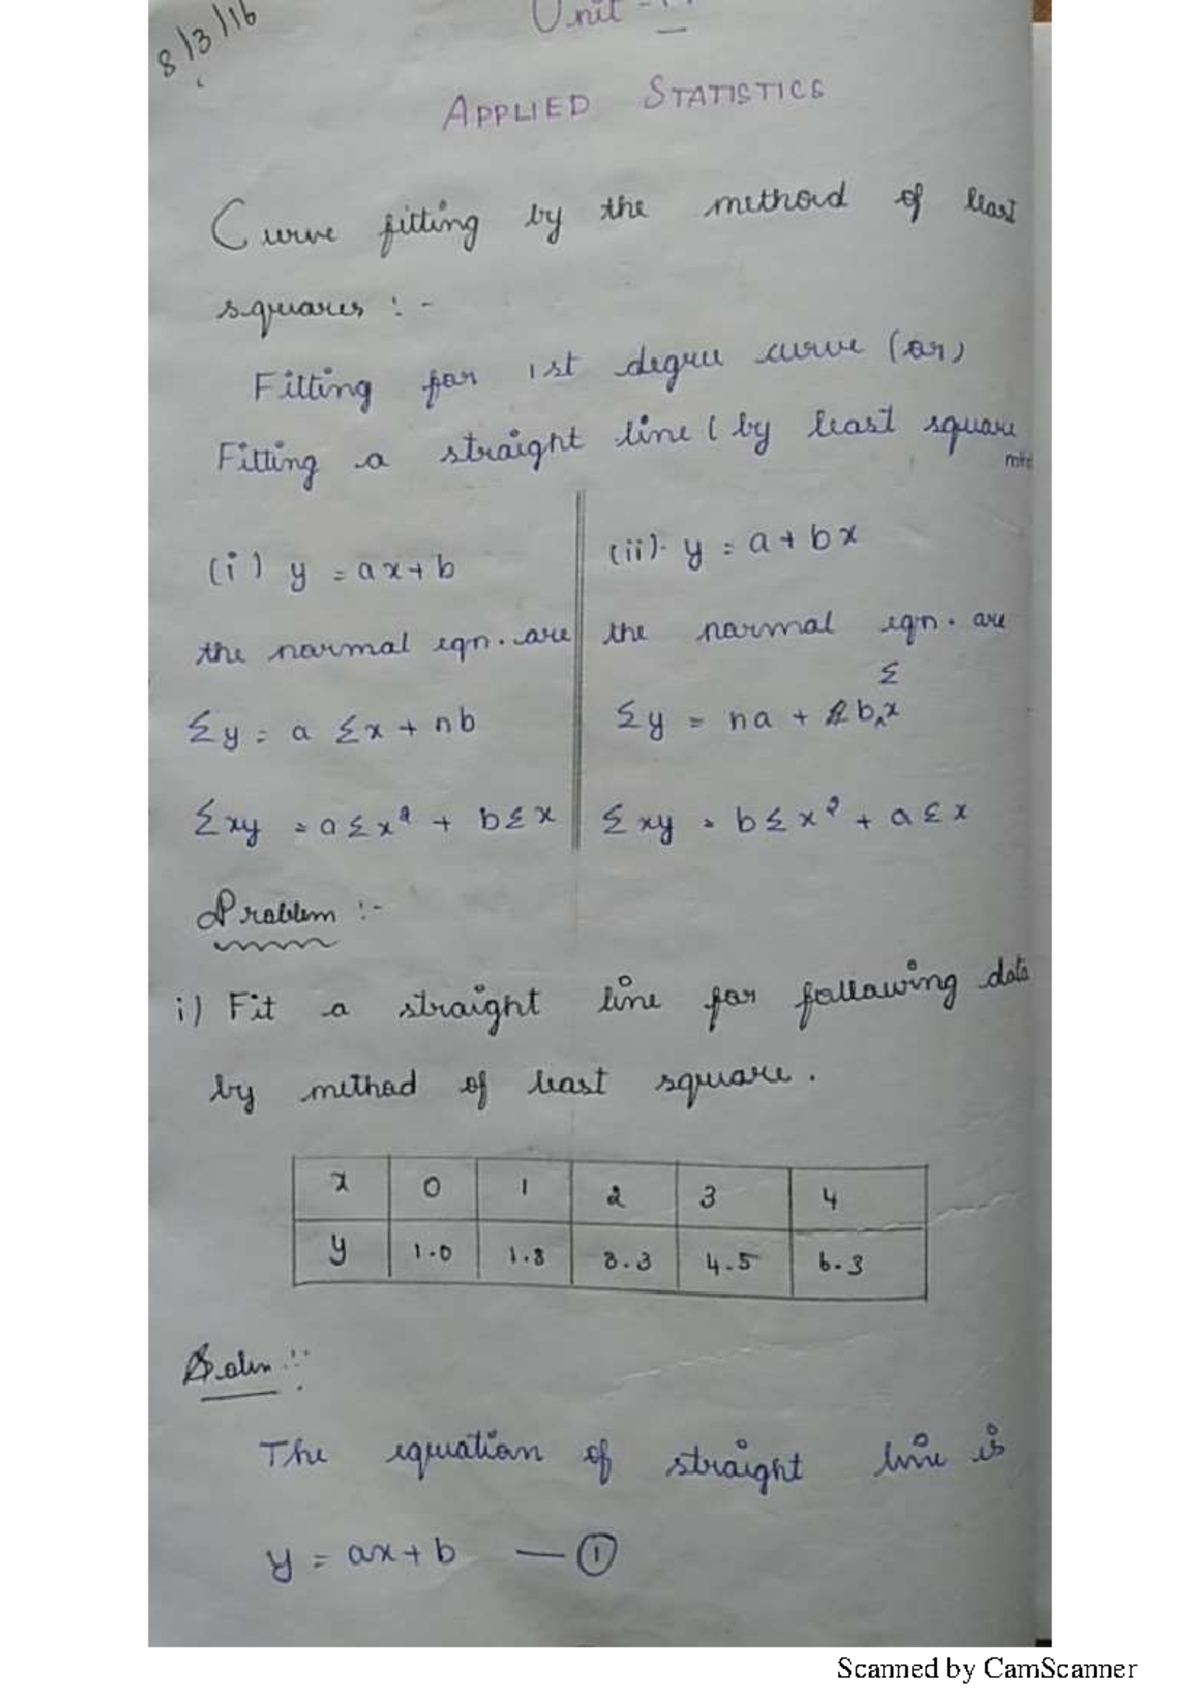 8/3/16
Unit -
APPLIED STATISTICS
Curve fitting by the method of least
squares :-
Fitting for 1st degree curve (or)
Fitting a straight line ( by least square
mtd
(i) y = ax+b
the normal eqn. are
Σy = a Σx + nb
Σxy = aΣx² + bΣx
(ii). y = a+bx
the normal eqn. are
Σ
Σy = na + b^x
Σxy = bΣx² + aΣx
Problem :-
i) Fit a straight line for following data
by method of least square.
x 0 1 2 3 4
y 1.0 1.8 3.3 4.5 6.3
Soln :-
The equation of straight line is
y = ax+b — ①
Scanned by CamScanner